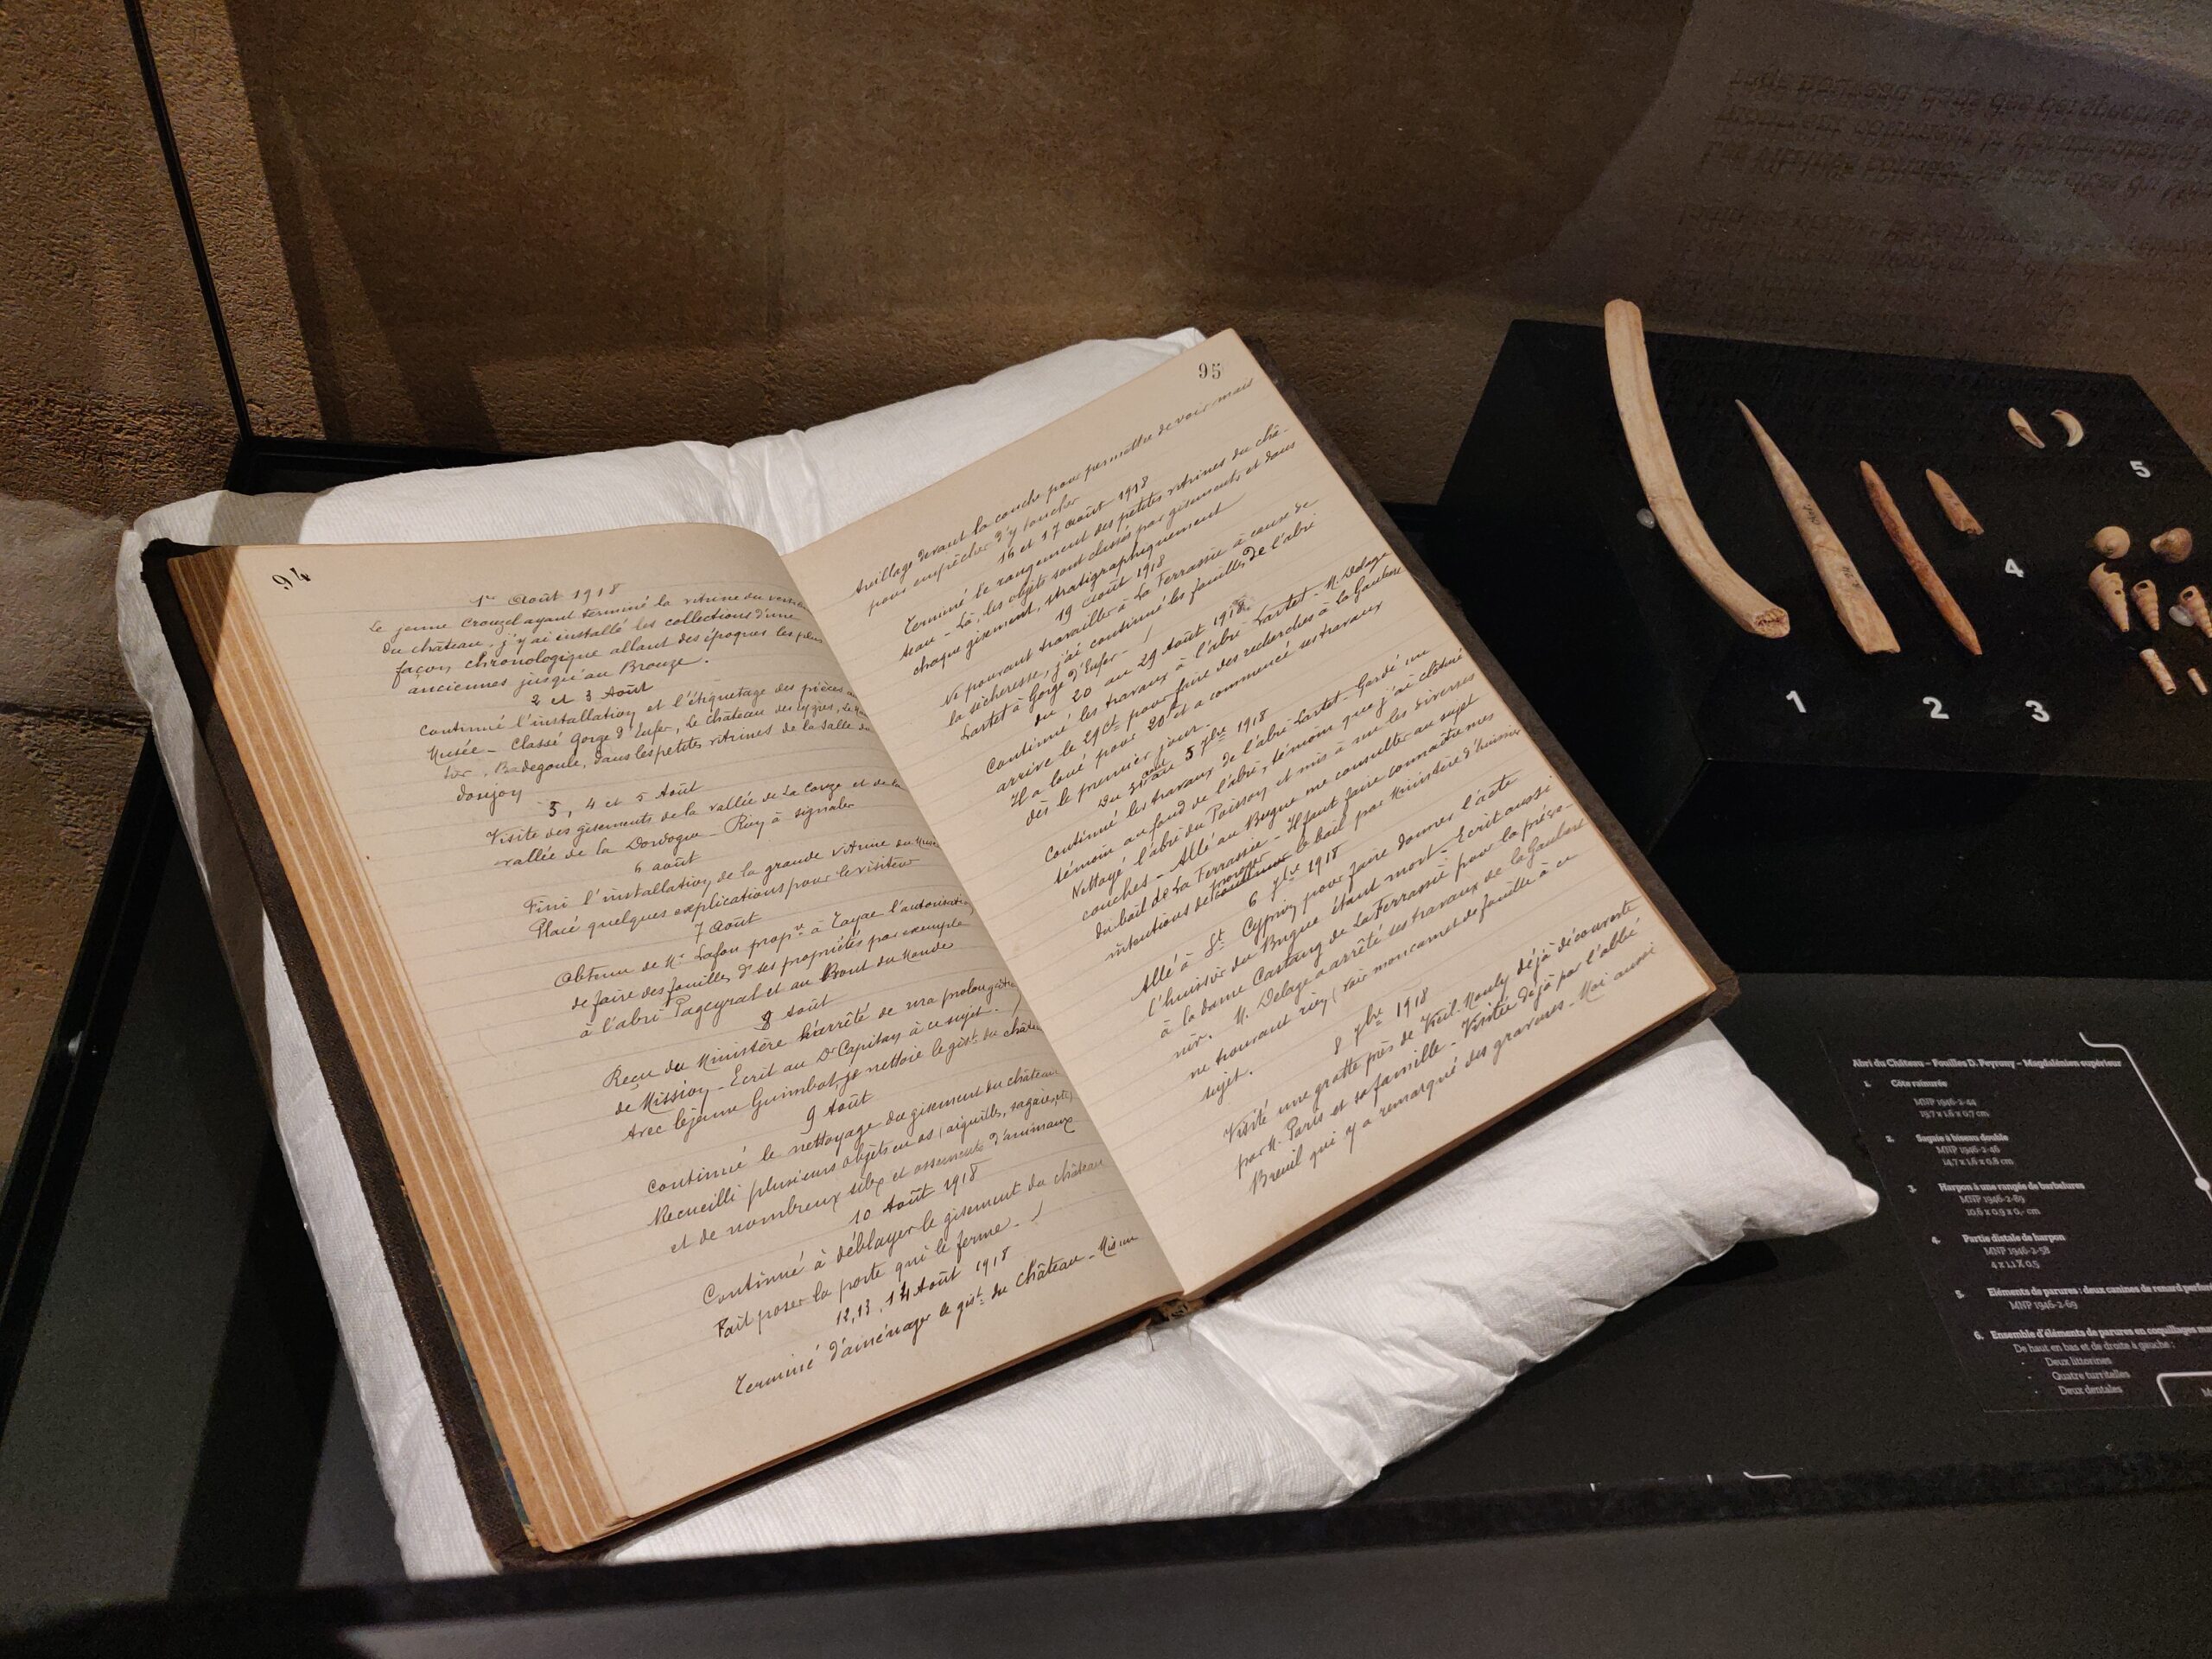 94
1er Août 1918
Le jeune Crouzel ayant terminé la vitrine du
du château, j'y ai installé les collections d'une
façon chronologique allant des époques les plus
anciennes jusqu'au Bronze.
2 et 3 Août
Continué l'installation et l'étiquetage des pièces au
Musée - Classé Gorge d'Enfer, Le château des eyzies,
Badegoule, dans les petites vitrines de la salle du
donjon
3, 4 et 5 Août
Visite des gisements de la vallée de La Couze et de la
vallée de la Dordogne - Rien à signaler
6 août
Fini l'installation de la grande vitrine du
Placé quelques explications pour le visiteur
7 Août
Obtenu de Mr Lafon propre à Tayac l'autorisation
de faire des fouilles, ds ses propriétés par exemple
à l'abri Pageyral et au Bout du Monde
8 Août
Reçu du Ministère l'arrêté de ma prolongation
de Mission - Écrit au Dr Capitan à ce sujet.
Avec le jeune Guimbot, je nettoie le gist du château
9 Août
Continué le nettoyage du gisement du château
Recueilli plusieurs objets en os (aiguilles, sagaies, etc)
et de nombreux silex et ossements d'animaux
10 Août 1918
Continué à déblayer le gisement du château
Fait poser la porte qui le ferme -
12, 13, 14 Août 1918
Terminé d'aménager le gist du Château - Mis un
95
treillage devant la couche pour permettre de voir mais
pour empêcher d'y toucher
16 et 17 août 1918
Terminé le rangement des petites vitrines du châ-
teau - Là, les objets sont classés par gisements et dans
chaque gisement, stratigraphiquement
19 août 1918
Ne pouvant travailler à La Ferrassie à cause de
la sécheresse, j'ai continué les fouilles de l'abri
Lartet à Gorge d'Enfer -
du 20 au 29 Août 1918
Continué les travaux à l'abri Lartet - M. Delage
arrive le 29 ct pour faire des recherches à La Gaubert
Il a loué pour 20f et a commencé ses travaux
dès le premier jour.
Du 31 août au 5 7bre 1918
Continué les travaux de l'abri Lartet - Gardé un
témoin au fond de l'abri, témoin que j'ai clôturé
Nettoyé l'abri du Poisson et mis à nu les diverses
couches - Allé au Bugue me consulter au sujet
du bail de La Ferrassie - Il faut faire connaître mes
intentions de proroger le bail par Ministère d'huissier
6 7bre 1918
Allé à St Cyprien pour faire donner l'acte
l'huissier du Bugue étant mort - Écrit aussi
à la dame Castang de La Ferrassie pour la préve-
nir. M. Delage a arrêté ses travaux de la Gaubert
ne trouvant rien (voir mon carnet de fouille à ce
sujet.
8 7bre 1918
Visité une grotte près de Vieil-Mouly déjà découverte
par M. Paris et sa famille - Visitée déjà par l'abbé
Breuil qui y a remarqué des gravures - Moi aussi
1
2
3
4
5
Abri du Château – Fouilles D. Peyrony – Magdalénien supérieur
1. Côte rainurée
MNP 1946-2-44
19,7 x 1,6 x 0,7 cm
2. Sagaie à biseau double
MNP 1946-2-46
14,7 x 1,6 x 0,8 cm
3. Harpon à une rangée de barbelures
MNP 1946-2-89
10,6 x 0,9 x 0,- cm
4. Partie distale de harpon
MNP 1946-2-58
4 x 1,1 X 0,5
5. Eléments de parures : deux canines de renard
MNP 1946-2-69
6. Ensemble d'éléments de parures en coquillages
De haut en bas et de droite à gauche :
- Deux littorines
- Quatre turritelles
- Deux dentales